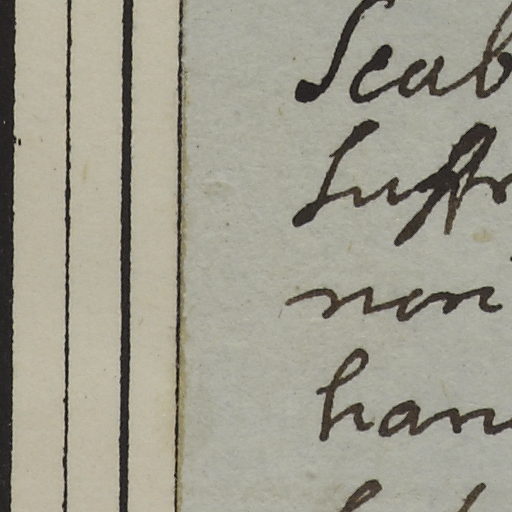 Scab
Suffr
non
han